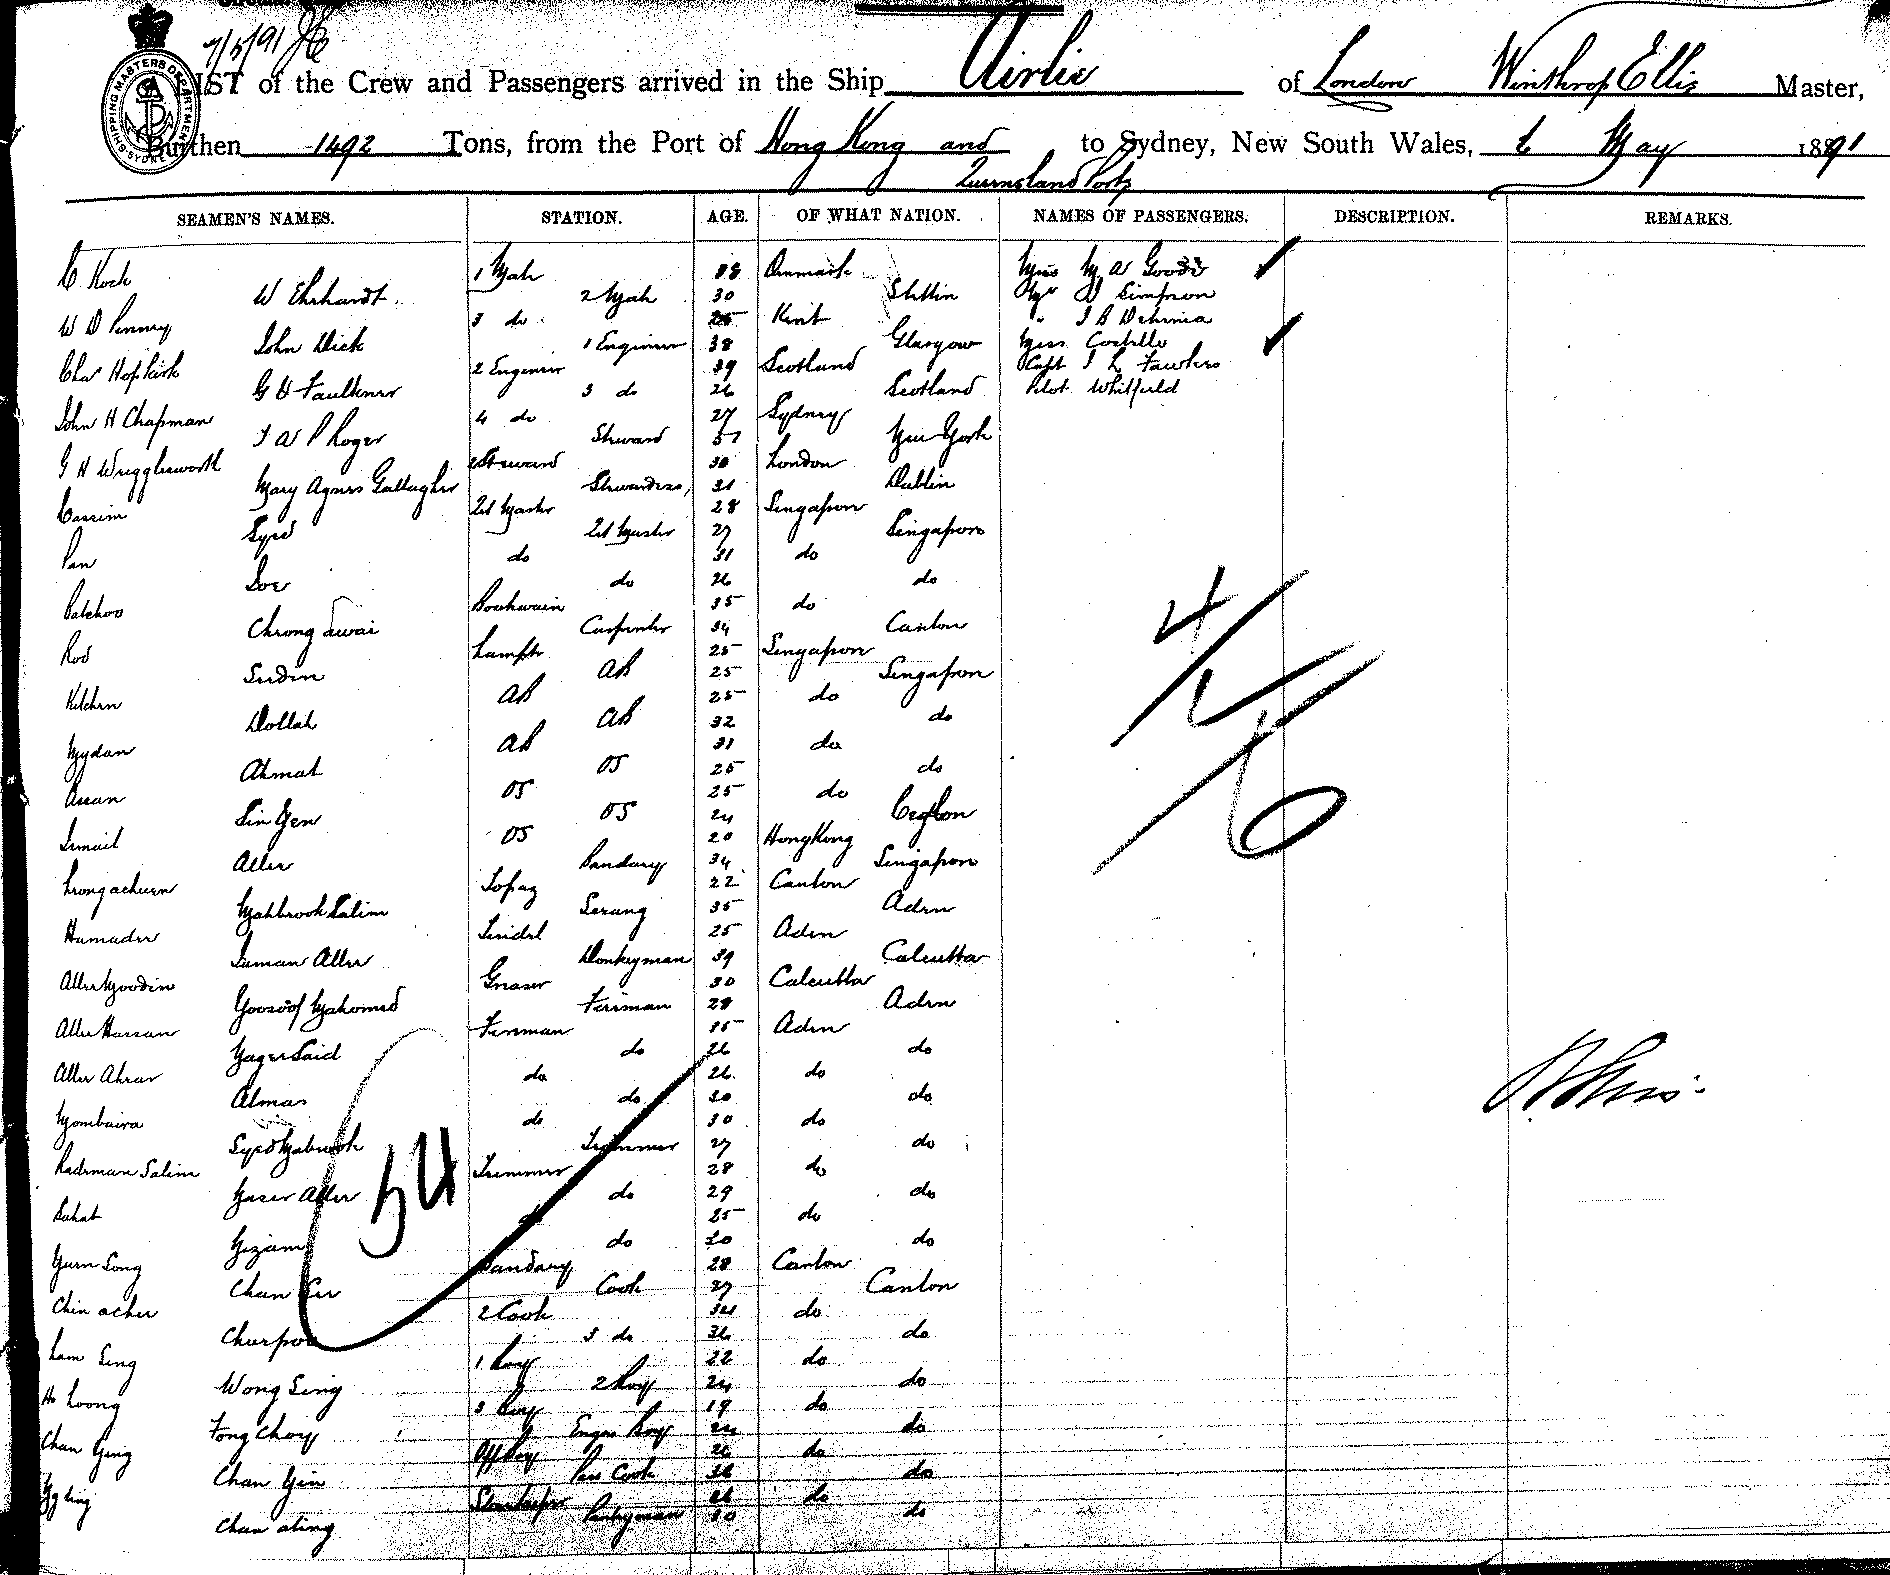 7/5/91
SHIPPING MASTERS DEPARTMENT SYDNEY
LIST of the Crew and Passengers arrived in the Ship Airlie of London Winthrop Ellis Master,
Burthen 1492 Tons, from the Port of Hong Kong and to Sydney, New South Wales, 6 May 1891
Queensland Ports
SEAMEN'S NAMES. STATION. AGE. OF WHAT NATION. NAMES OF PASSENGERS. DESCRIPTION. REMARKS.
C Koch 1 Mate 38 Denmark Miss M A Goode
W Ehrhardt 2 Mate 30 Stettin Mr Simpson
W D Penney 3 do 25 Kent
John Dick 1 Engineer 38 Glasgow Miss Costello
Chas Hopkirk 2 Engineer 39 Scotland Capt Fawkes
G H Faulkner 3 do 26 Scotland Pilot Whitfield
John H Chapman 4 do 27 Sydney
J A P Roger Steward 37 New York
G H Wrigglesworth 2 Steward 30 London
Mary Agnes Gallagher Stewardess 31 Dublin
Cassim 2d Master 28 Singapore
Syed 2d Master 27 Singapore
Pan do 31 do
Soer do 26 do
Balchoo Boatswain 35 do
Chrong Carpenter 34 Canton
Rod Lamptr 25 Singapore
Seedin AB 25 Singapore
Kitchen AB 25 do
Dollah AB 32 do
Mydan AB 31 do
Ahmat OS 25 do
Assan OS 25 do
Sin Gen OS 24 Ceylon
Ismail OS 20 Hong Kong
Aller Bandary 34 Singapore
Topaz 22 Canton
Mahbrook Salim Serang 35 Aden
Hamader Tindel 25 Aden
Suman Aller Donkeyman 39 Calcutta
Aller Moodin Greaser 30 Calcutta
Goosoof Mahomed Fireman 28 Aden
Aller Hassan Fireman 35 Aden
Mager Said do 26 do
Aller do 26 do
Almas do 30 do
Mombaira do 30 do
Syed Mabrook Trimmer 27 do
Raheman Salim Trimmer 28 do
Naser Aller do 29 do
Sahat do 25 do
Mizam do 30 do
Yuen Song Bandary 28 Canton
Chan Cook 27 Canton
Chin acher 2 Cook 34 do
Churpow 3 do 36 do
Lam Sing 1 Boy 22 do
Wong Sing 2 Boy 24 do
Ho Loong 3 Boy 19 do
Fong Choy Engrs Boy 24 do
Chan Yung Off Boy 26 do
Chan Yin Pass Cook 36 do
Storekeeper 26 do
Chan ating Pantryman 30 do
54
4
2
6
W Ellis